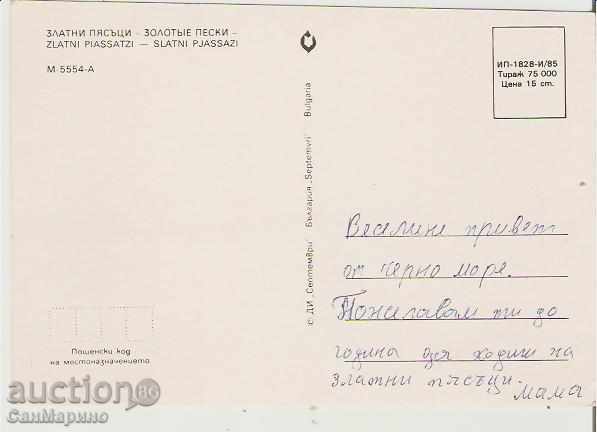 ЗЛАТНИ ПЯСЪЦИ - ЗОЛОТЫЕ ПЕСКИ -
ZLATNI PIASSATZI — SLATNI PJASSAZI
М-5554-А
ИП-1828-И/85
Тираж 75 000
Цена 15 ст.
© ДИ „Септември" България „Septemvri" Bulgaria
Веселине привет
от Черно море.
Пожелавам ти до
година да ходиш на
златни пясъци.
Мама
Пощенски код
на местоназначението
auction BG
СанМарино